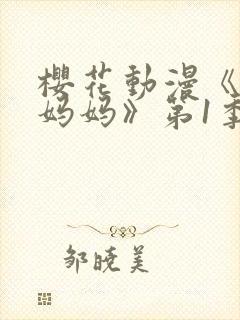 櫻花動漫《
妈妈》第1季
邹晓美